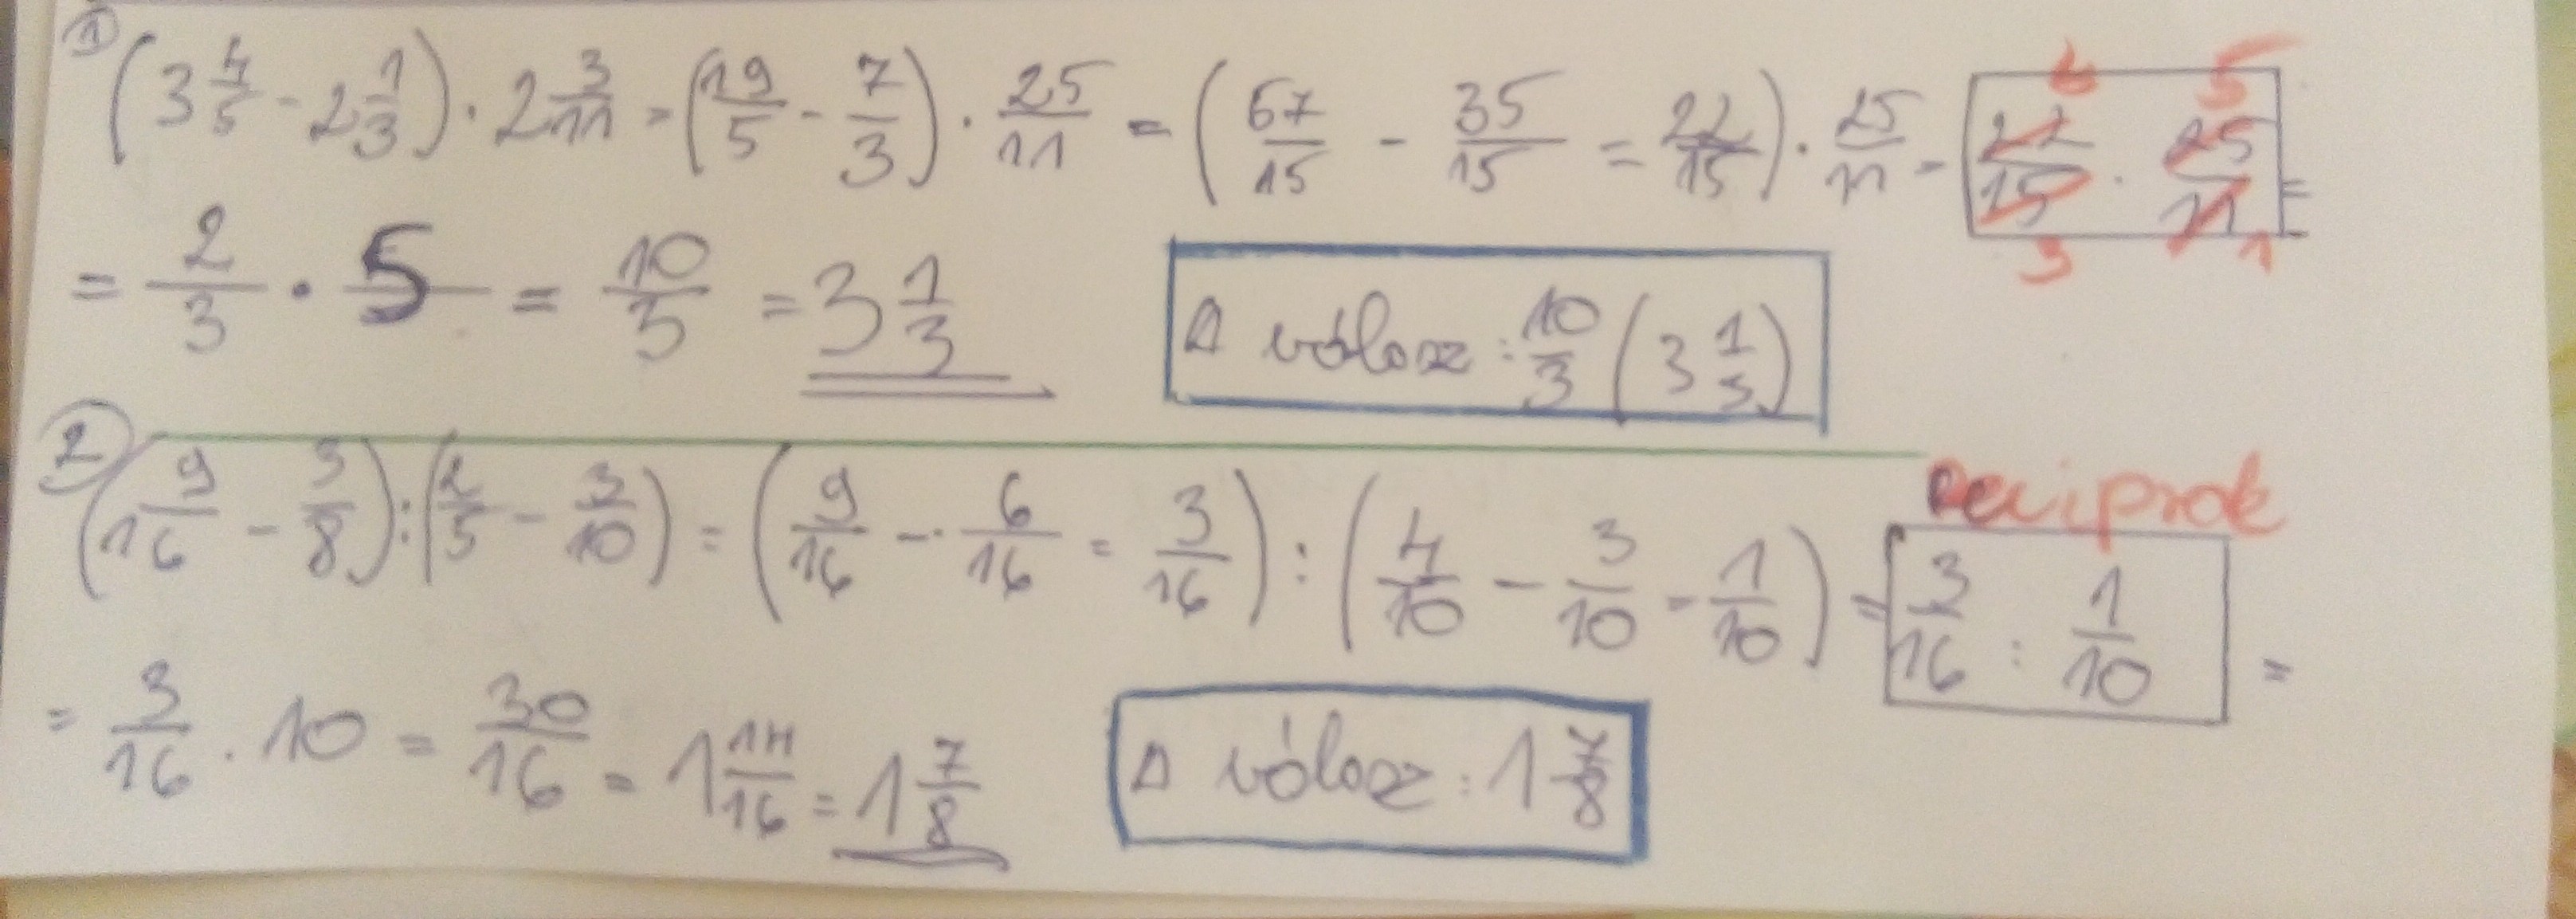 ①
(3 4/5 - 2 1/3) · 2 3/11 = (19/5 - 7/3) · 25/11 = (57/15 - 35/15 = 22/15) · 25/11 = 22/15 · 25/11 =
= 2/3 · 5 = 10/3 = 3 1/3
A válasz: 10/3 (3 1/3)
②
reciprok
(1 9/16 - 3/8) : (2/5 - 3/10) = (9/16 - 6/16 = 3/16) : (4/10 - 3/10 = 1/10) = 3/16 : 1/10 =
= 3/16 · 10 = 30/16 = 1 14/16 = 1 7/8
A válasz: 1 7/8